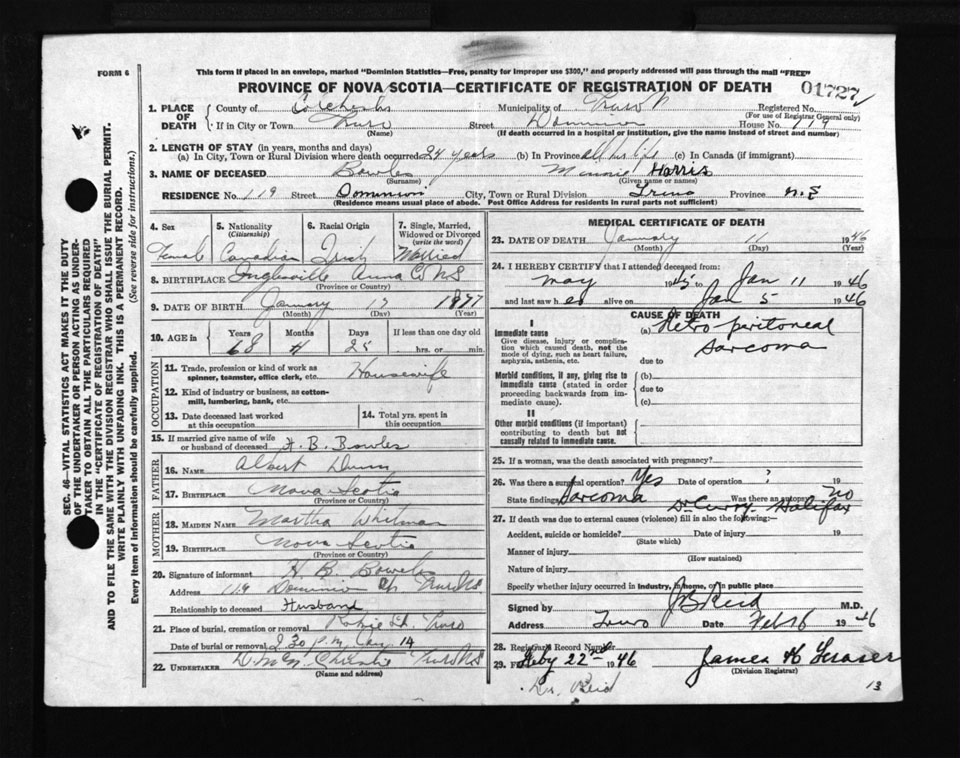 FORM 6
This form if placed in an envelope, marked "Dominion Statistics—Free, penalty for improper use $300," and properly addressed will pass through the mail "FREE"
PROVINCE OF NOVA SCOTIA—CERTIFICATE OF REGISTRATION OF DEATH
01727
1. PLACE OF DEATH County of Colchester Municipality of Truro Registered No.
(For use of Registrar General only)
If in City or Town Truro Street Dominion House No. 119
(Name) (If death occurred in a hospital or institution, give the name instead of street and number)
2. LENGTH OF STAY (in years, months and days)
(a) In City, Town or Rural Division where death occurred 24 years (b) In Province all her life (c) In Canada (if immigrant)
3. NAME OF DECEASED Bowles Minnie Harris
(Surname) (Given name or names)
RESIDENCE No. 119 Street Dominion City, Town or Rural Division Truro Province N.S
(Residence means usual place of abode. Post Office Address for residents in rural parts not sufficient)
4. Sex 5. Nationality (Citizenship) 6. Racial Origin 7. Single, Married, Widowed or Divorced (write the word)
Female Canadian Irish Married
8. BIRTHPLACE Inglisville Anna Co NS
(Province or Country)
9. DATE OF BIRTH January 1877
(Month) (Day) (Year)
10. AGE Years Months Days If less than one day old
68 25 hrs. or min.
OCCUPATION
11. Trade, profession or kind of work as spinner, teamster, office clerk, etc. Housewife
12. Kind of industry or business, as cotton-mill, lumbering, bank, etc.
13. Date deceased last worked at this occupation
14. Total yrs. spent in this occupation
15. If married give name of wife or husband of deceased H. B. Bowles
FATHER
16. NAME Albert Dunn
17. BIRTHPLACE Nova Scotia
(Province or Country)
MOTHER
18. MAIDEN NAME Martha Whitman
19. BIRTHPLACE Nova Scotia
(Province or Country)
20. Signature of informant H. B. Bowles
Address 119 Dominion St Truro NS
Relationship to deceased Husband
21. Place of burial, cremation or removal Robie St. Truro
Date of burial or removal 2 30 p.m. 14
22. UNDERTAKER Christie Truro NS
(Name and address)
MEDICAL CERTIFICATE OF DEATH
23. DATE OF DEATH January 11 1946
(Month) (Day)
24. I HEREBY CERTIFY that I attended deceased from:
May 1945 to Jan 11 1946
and last saw her alive on Jan 5 1946
CAUSE OF DEATH
I
Immediate cause
Give disease, injury or complication which caused death, not the mode of dying, such as heart failure, asphyxia, asthenia, etc.
(a) Retro peritoneal
Sarcoma
due to
Morbid conditions, if any, giving rise to immediate cause (stated in order proceeding backwards from immediate cause).
(b)
due to
(c)
II
Other morbid conditions (if important) contributing to death but not causally related to immediate cause.
25. If a woman, was the death associated with pregnancy?
26. Was there a surgical operation? Yes Date of operation ? 19
State findings Sarcoma Was there an autopsy? no
Dr Curry Halifax
27. If death was due to external causes (violence) fill in also the following:—
Accident, suicide or homicide? Date of injury 19
(State which)
Manner of injury
(How sustained)
Nature of injury
Specify whether injury occurred in industry, in home, or in public place
Signed by J B Reid M.D.
Address Truro Date Feb 16 1946
28. Registrar's Record Number
29. Feby 22nd 1946 James H Fraser
(Division Registrar)
Dr. Reid
13
SEC. 46—VITAL STATISTICS ACT MAKES IT THE DUTY
OF THE UNDERTAKER OR PERSON ACTING AS UNDERTAKER TO OBTAIN ALL THE PARTICULARS REQUIRED
IN THE "CERTIFICATE OF REGISTRATION OF DEATH"
AND TO FILE THE SAME WITH THE DIVISION REGISTRAR WHO SHALL ISSUE THE BURIAL PERMIT.
WRITE PLAINLY WITH UNFADING INK. THIS IS A PERMANENT RECORD.
Every item of information should be carefully supplied. (See reverse side for instructions.)